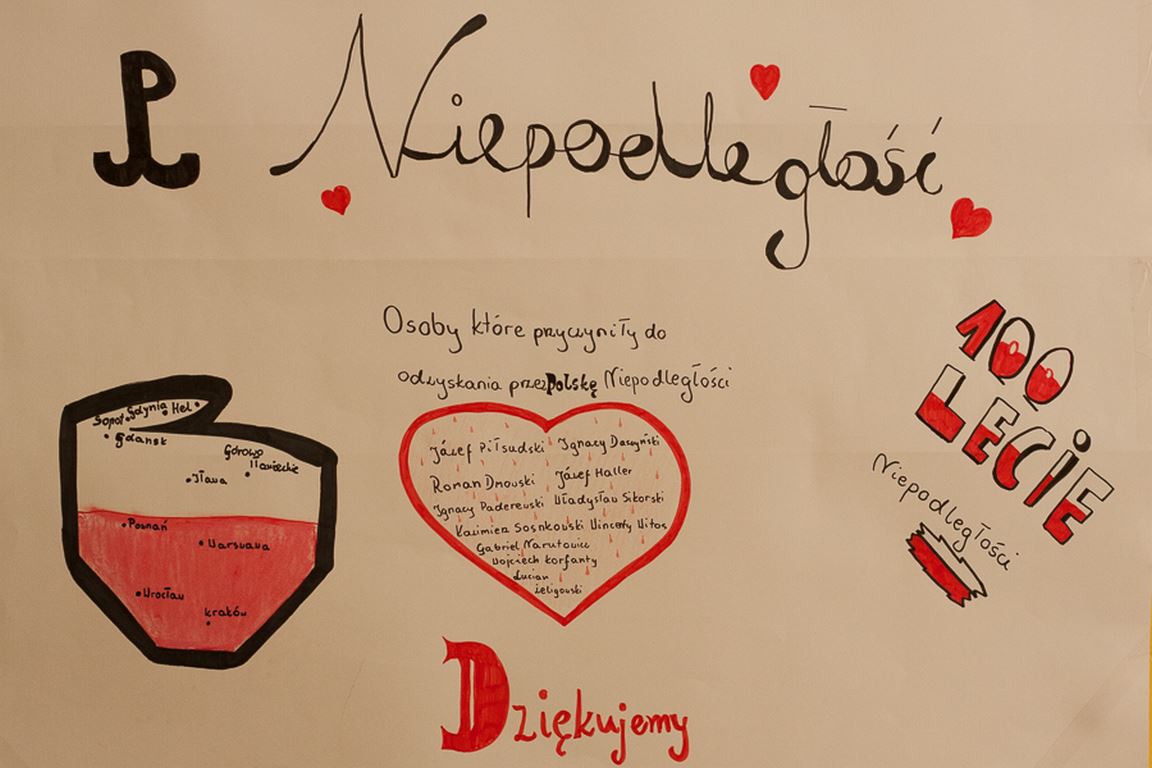 P
Niepodległość
Osoby które przyczyniły do
odzyskania przez Polskę Niepodległości
100
LECIE
Niepodległości
Sopot Gdynia Hel
Gdańsk
Iława
Poznań
Warszawa
Wrocław
Kraków
Józef Piłsudski Ignacy Daszyński
Roman Dmowski Józef Haller
Ignacy Paderewski Władysław Sikorski
Kazimierz Sosnkowski Wincenty Witos
Gabriel Narutowicz
Wojciech Korfanty
Lucian
Żeligowski
Dziękujemy